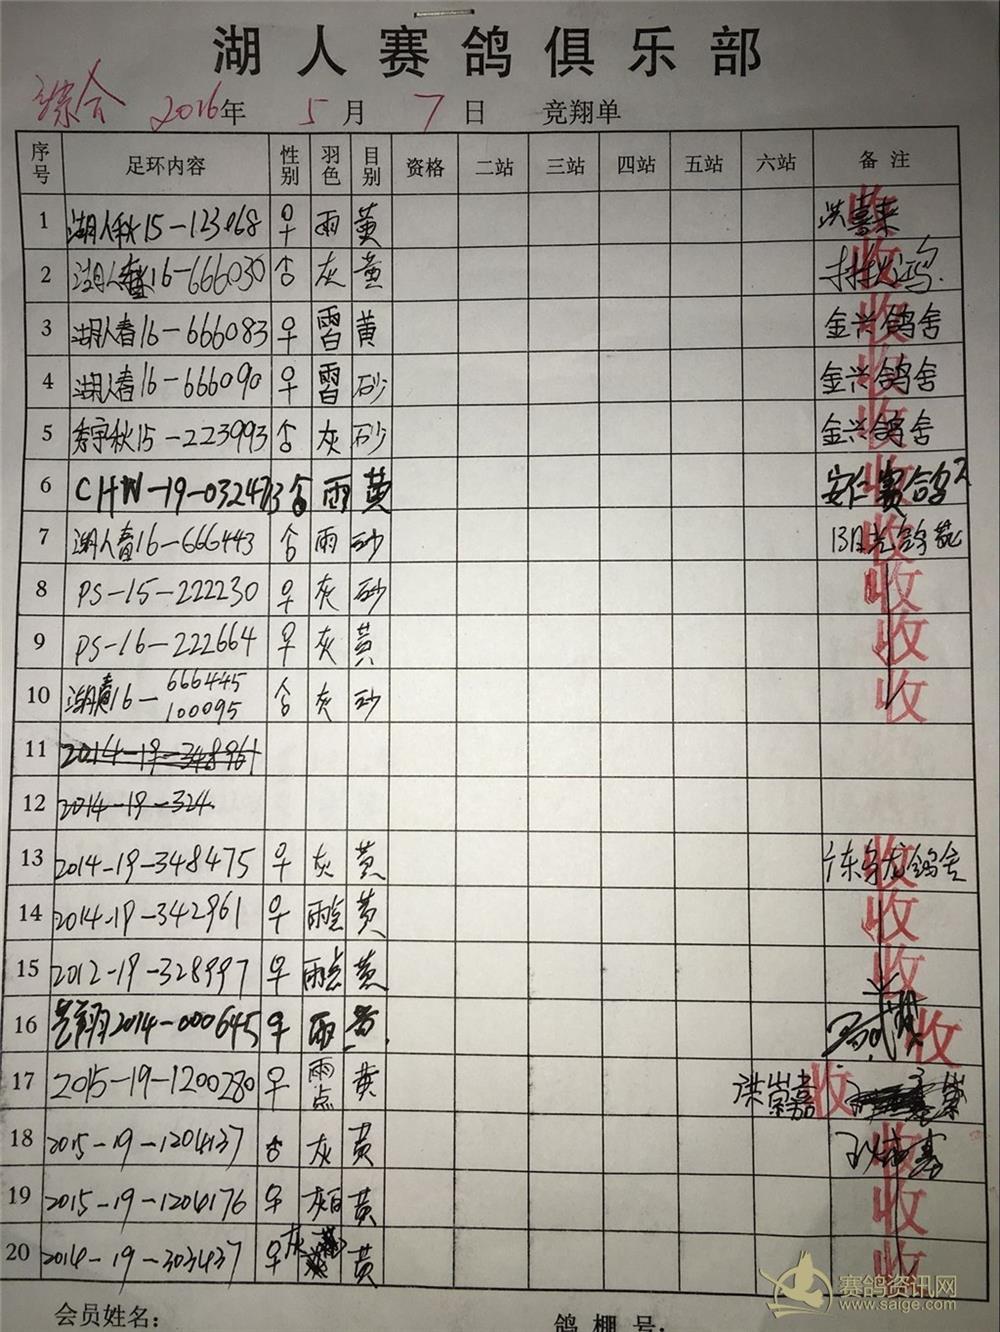 湖人赛鸽俱乐部
综合 2016年 5月 7日 竞翔单
序号 足环内容 性别 羽色 目别 资格 二站 三站 四站 五站 六站 备注
1 湖人秋15-123068 ♀ 雨 黄 洪喜来 收
2 湖人春16-666030 合 灰 黄 收
3 湖人春16-666083 ♀ 雨白 黄 金兴鸽舍 收
4 湖人春16-666090 ♀ 雨白 砂 金兴鸽舍 收
5 秋15-223993 合 灰 砂 金兴鸽舍 收
6 CHN-19-032473 合 雨 黄 安仁赛鸽 收
7 湖人春16-666443 合 雨 砂 收
8 PS-15-222230 ♀ 灰 砂 收
9 PS-16-222664 ♀ 灰 黄 收
10 湖春16-666445 100095 合 灰 砂 收
11 2014-19-348961
12 2014-19-324
13 2014-19-348475 ♀ 灰 黄 鸽舍 收
14 2014-19-342961 ♀ 雨点 黄 收
15 2012-19-328997 ♀ 雨点 黄 收
16 翔2014-000645 ♀ 雨 黄 收
17 2015-19-1200280 ♀ 雨点 黄 洪崇嘉 收
18 2015-19-1204137 合 灰 黄 收
19 2015-19-1204176 ♀ 灰白 黄 收
20 2014-19-303437 ♀ 灰 黄 收
会员姓名： 鸽棚号：
赛鸽资讯网
www.saige.com